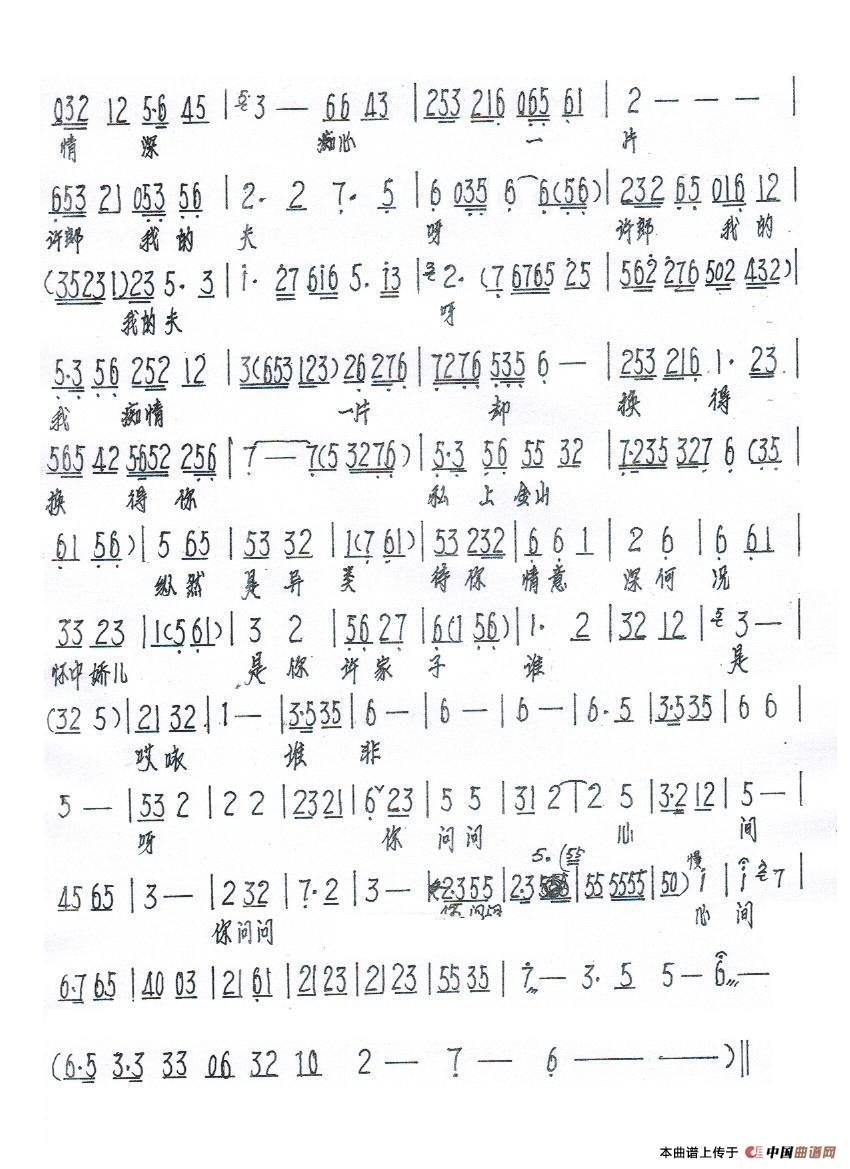 032 12 5·6 45 | 3 — 66 43 | 253 216 065 61 | 2 — — — |
情 深 痴心 一 片
653 21 053 56 | 2· 2 7· 5 | 6 035 6 6(56) | 232 65 016 12 |
许郎 我的 夫 呀 许郎 我的
(35231)23 5· 3 | i· 27 6i6 5· i3 | 2· (7 6765 25 | 562 276 502 432) |
我的夫 呀
5·3 56 252 12 | 3(653 123) 26 276 | 7276 535 6 — | 253 216 1· 23 |
我 痴情 一片 却 换 得
565 42 5652 256 | 7 — 7(5 3276) | 5·3 56 55 32 | 7·235 327 6 (35 |
换 得你 私上金山
61 56) | 5 65 | 53 32 | 1(7 61) | 53 232 | 6 6 1 | 2 6 | 6 61 |
纵然 是异 类 待你 情意 深何 况
33 23 | 1(5 61) | 3 2 | 56 27 | 6(1 56) | 1· 2 | 32 12 | 3 — |
怀中娇儿 是你 许家 子 谁 是
(32 5) | 21 32 | 1 — | 3·5 35 | 6 — | 6 — | 6 — | 6· 5 | 3·5 35 | 6 6 |
哎咳 谁 非
5 — | 53 2 | 2 2 | 23 21 | 6 23 | 5 5 | 31 2 | 2 5 | 3·2 12 | 5 — |
呀 你 问问 心 间
5· (55
45 65 | 3 — | 2 32 | 7· 2 | 3 — | 2·3 55 | 2·3 | 55 5555 | 50) i | i 7 |
慢
你问问 你问问 心 间
6·7 65 | 40 03 | 21 61 | 21 23 | 21 23 | 55 35 | 7 — 3· 5 5 — 6 —
(6·5 3·3 33 06 32 10 2 — 7 — 6 — —)||
本曲谱上传于 中国曲谱网